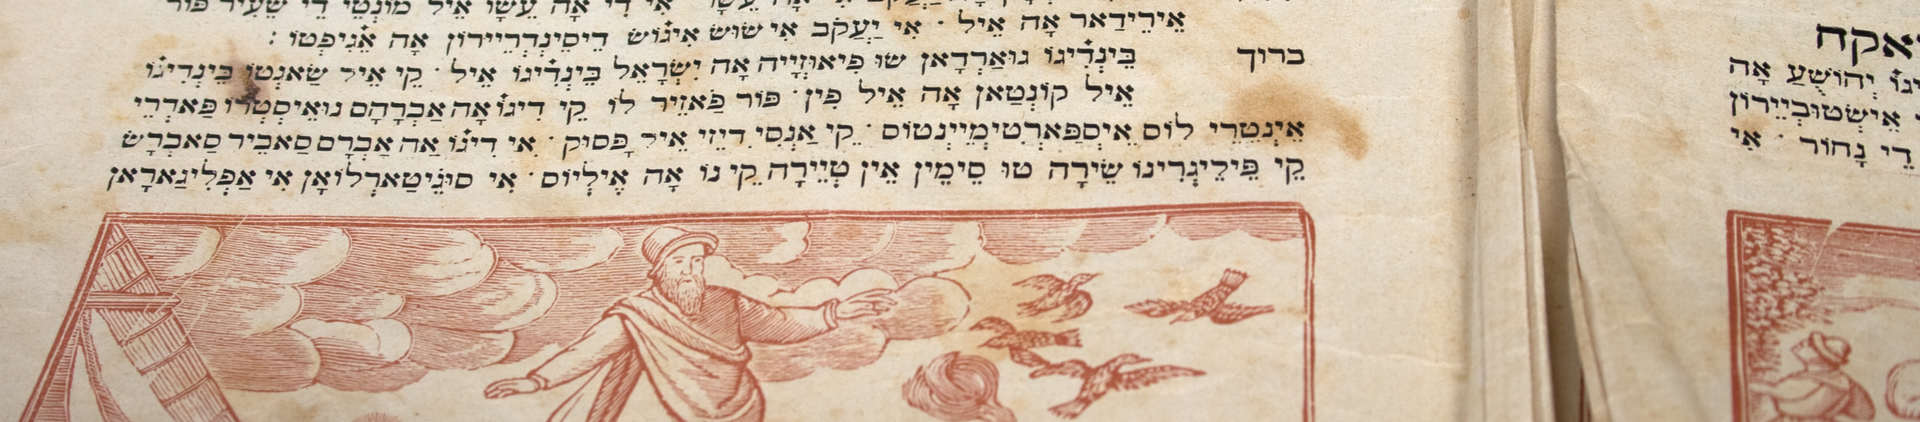 אֵירֵידַאר אָה אֵיל · אִי יַעֲקֹב אִי שׁוּשׁ אִיגֿוֹשׁ דֵיסֵינְדְרִיירוֹן אָה אַגִֿיפְטוֹ :
ברוך בֵּינְדִֿיגוֹ גוּאַרְדָאן שׁוּ פִּיאוּזִייָה אָה יִשְׂרָאֵל בֵּינְדִֿיגוֹ אֵיל · קֵי אֵיל שַׂאנְטוֹ בֵּינְדִֿיגוֹ
אֵיל קוֹנְטַאן אָה אֵיל פִין · פּוֹר פַֿאזֵיר לוֹ קֵי דִיגוֹ אָה אַבְרָהָם נוּאֵיסְטְרוֹ פַּאדְרֵי
אֵינְטְרֵי לוֹס אֵיסְפַּארְטִימְיֵינְטוֹס · קֵי אַנְסִי דִיזֵי אֵיל פָּסוּק · אִי דִיגֿוֹ אַה אַבְרָם סַאבֵּיר סַאבְרָשׂ
קֵי פֵּילֵיגְרִינוֹ שֵׂירָה טוּ סֵימֵין אֵין טְיֵירָה קֵי נוֹ אָה אֵילְיוֹס · אִי סוּגֵֿיטַארְלוֹאָן אִי אַפְלִיגַארָאן
יְהוֹשֻׁעַ אָה
אֵישְׂטוּבְיֵירוֹן
דֵי נָחוֹר · אִי